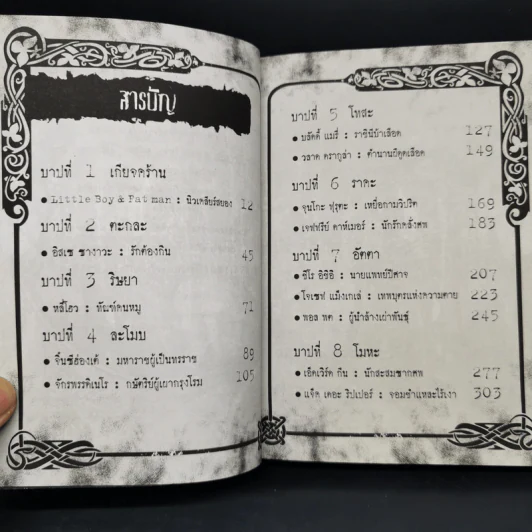 สารบัญ
บาปที่ 1 เกียจคร้าน
• Little Boy & Fat man : นิวเคลียร์สยอง 12
บาปที่ 2 ตะกละ
• อิสเซ ซางาวะ : รักต้องกิน 45
บาปที่ 3 ริษยา
• หลี่โฮว : ทัณฑ์คนหมู 71
บาปที่ 4 ละโมบ
• จิ๋นซีฮ่องเต้ : มหาราชผู้เป็นทรราช 89
• จักรพรรดิเนโร : กษัตริย์ผู้เผากรุงโรม 105
บาปที่ 5 โทสะ
• บลัดดี้ แมรี่ : ราชินีบ้าเลือด 127
• วลาด ดรากูล่า : ตำนานผีดูดเลือด 149
บาปที่ 6 ราคะ
• จุนโกะ ฟุรุตะ : เหยื่อกามวิปริต 169
• เจฟฟรีย์ ดาห์เมอร์ : นักรักคลั่งศพ 183
บาปที่ 7 อัตตา
• ชีโร อิชิอิ : นายแพทย์ปีศาจ 207
• โจเซฟ แม็งเกเล่ : เทพบุตรแห่งความตาย 223
• พอล พต : ผู้นำล้างเผ่าพันธุ์ 245
บาปที่ 8 โมหะ
• เอ็ดเวิร์ด กีน : นักสะสมซากศพ 277
• แจ็ค เดอะ ริปเปอร์ : จอมชำแหละไร้เงา 303